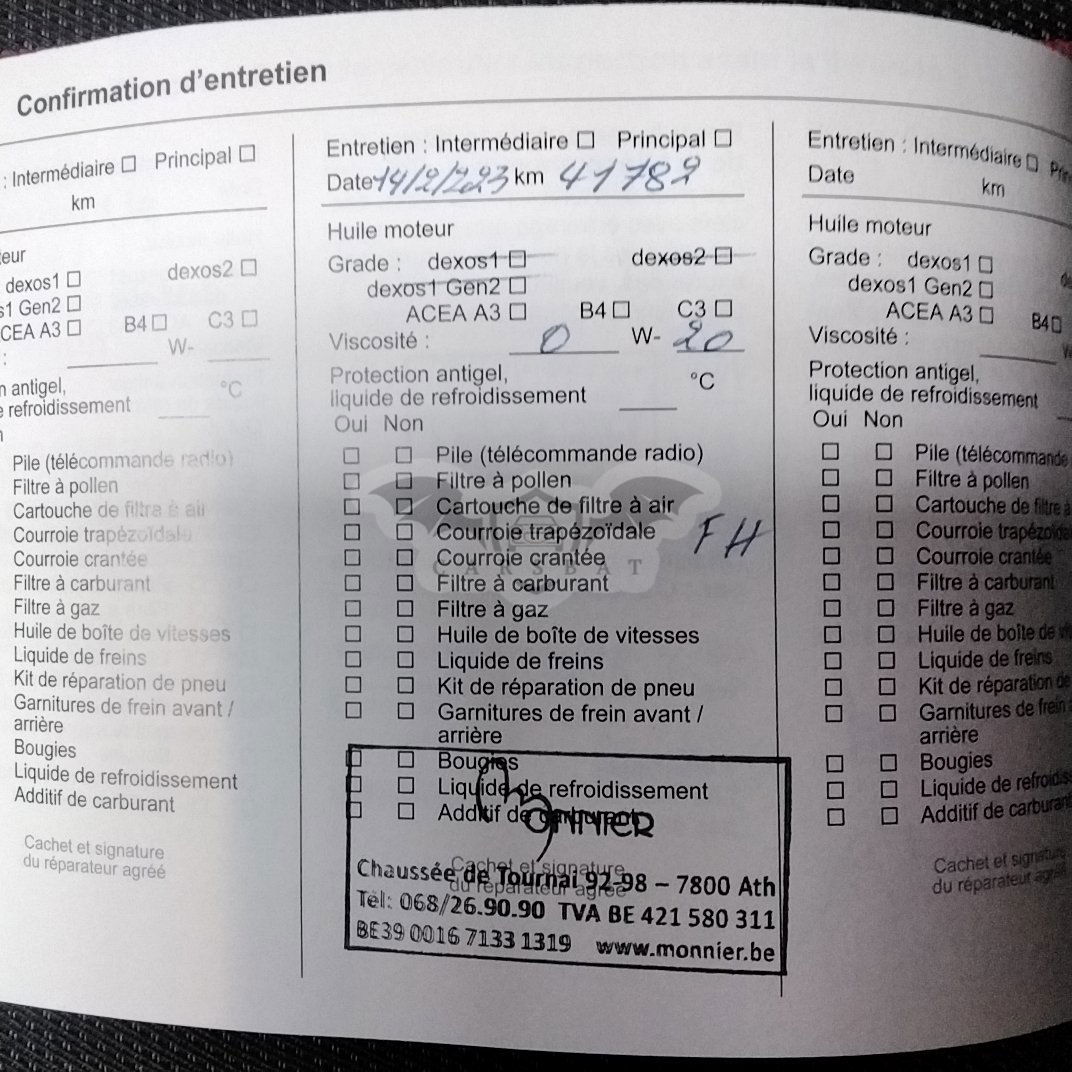 Confirmation d'entretien
: Intermédiaire ☐ Principal ☐
km
teur
dexos1 ☐ dexos2 ☐
s1 Gen2 ☐
CEA A3 ☐ B4 ☐ C3 ☐
: W-
n antigel, °C
e refroidissement
Pile (télécommande radio)
Filtre à pollen
Cartouche de filtre à air
Courroie trapézoïdale
Courroie crantée
Filtre à carburant
Filtre à gaz
Huile de boîte de vitesses
Liquide de freins
Kit de réparation de pneu
Garnitures de frein avant /
arrière
Bougies
Liquide de refroidissement
Additif de carburant
Cachet et signature
du réparateur agréé
Entretien : Intermédiaire ☐ Principal ☐
Date 14/2/2023 km 41782
Huile moteur
Grade : dexos1 ☐ dexos2 ☐
dexos1 Gen2 ☐
ACEA A3 ☐ B4 ☐ C3 ☐
Viscosité : 0 W- 20
Protection antigel, °C
liquide de refroidissement
Oui Non
☐ ☐ Pile (télécommande radio)
☐ ☐ Filtre à pollen
☐ ☐ Cartouche de filtre à air
☐ ☐ Courroie trapézoïdale FH
☐ ☐ Courroie crantée
CARSBAT
☐ ☐ Filtre à carburant
☐ ☐ Filtre à gaz
☐ ☐ Huile de boîte de vitesses
☐ ☐ Liquide de freins
☐ ☐ Kit de réparation de pneu
☐ ☐ Garnitures de frein avant /
arrière
☐ ☐ Bougies
☐ ☐ Liquide de refroidissement
☐ ☐ Additif de carburant
MONNIER
Cachet et signature
du réparateur agréé
Chaussée de Tournai 92-98 – 7800 Ath
Tél: 068/26.90.90 TVA BE 421 580 311
BE39 0016 7133 1319 www.monnier.be
Entretien : Intermédiaire ☐
Date km
Huile moteur
Grade : dexos1 ☐
dexos1 Gen2 ☐
ACEA A3 ☐ B4 ☐
Viscosité :
Protection antigel,
liquide de refroidissement
Oui Non
☐ ☐ Pile (télécommande
☐ ☐ Filtre à pollen
☐ ☐ Cartouche de filtre à
☐ ☐ Courroie trapézoïdal
☐ ☐ Courroie crantée
☐ ☐ Filtre à carburant
☐ ☐ Filtre à gaz
☐ ☐ Huile de boîte de
☐ ☐ Liquide de freins
☐ ☐ Kit de réparation de
☐ ☐ Garnitures de frein
arrière
☐ ☐ Bougies
☐ ☐ Liquide de refroidis
☐ ☐ Additif de carburant
Cachet et signature
du réparateur agréé